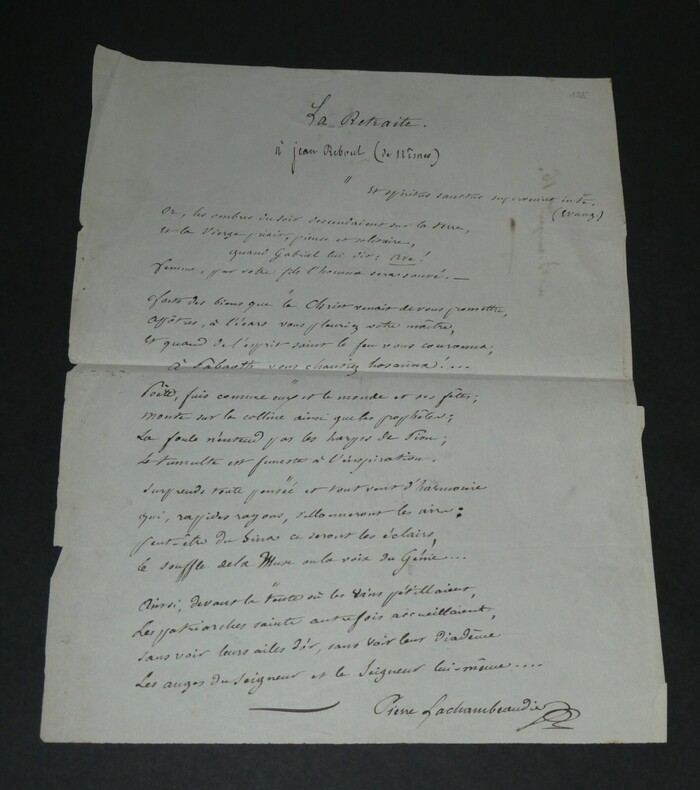 125
La Retraite.
à Jean Reboul (de Nîmes)
"
Et spiritus sanctus superveniet in te.
(Evang.)
Or, les ombres du soir descendaient sur la terre,
Et la Vierge priait, pieuse et solitaire,
Quand Gabriel lui dit: ave!
Femme, par votre fils l'homme sera sauvé. —
des biens que le Christ venait de vous promettre,
Apôtres, à l'écart vous pleuriez votre maître,
Et quand de l'esprit saint le feu vous couronna,
à vous chantiez hosanna!...
"
Poète, fuis comme eux et le monde et ses fêtes;
Monte sur la colline ainsi que les prophètes;
La foule n'entend pas les harpes de Sion;
Le tumulte est funeste à l'inspiration.
Surprends toute pensée et tout vent d'harmonie
Qui, rapides rayons, sillonneront les airs:
Peut-être du Sina ce seront les éclairs,
Le souffle de la Muse ou la voix du Génie...
"
Ainsi, devant la tente où les vins pétillaient,
Les patriarches saints autrefois accueillaient,
Sans voir leurs ailes d'or, sans voir leur diadème
Les anges du Seigneur et le Seigneur lui-même....
Pierre Lachambeaudie